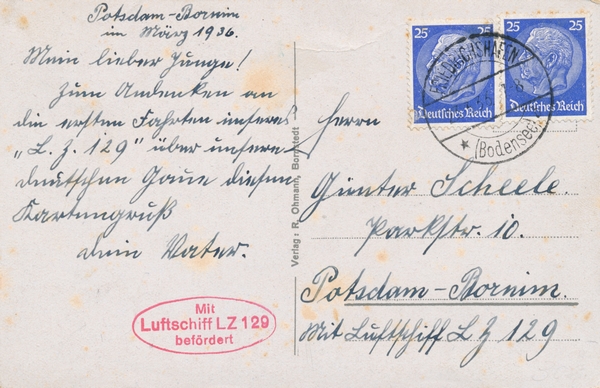 Potsdam-Bornim
im März 1936.
Mein lieber Junge!
Zum Andenken an
die ersten Fahrten unseres
"L. Z. 129" über unsere
deutschen Gaue diesen
Kartengruß
dein Vater.
Mit
Luftschiff LZ 129
befördert
Verlag: R. Ohmann, Bornstedt
25
25
Deutsches Reich
25
25
Deutsches Reich
FRIEDRICHSHAFEN
(Bodensee)
Herrn
Günter Scheele.
Parkstr. 10.
Potsdam-Bornim.
Mit Luftschiff L Z 129